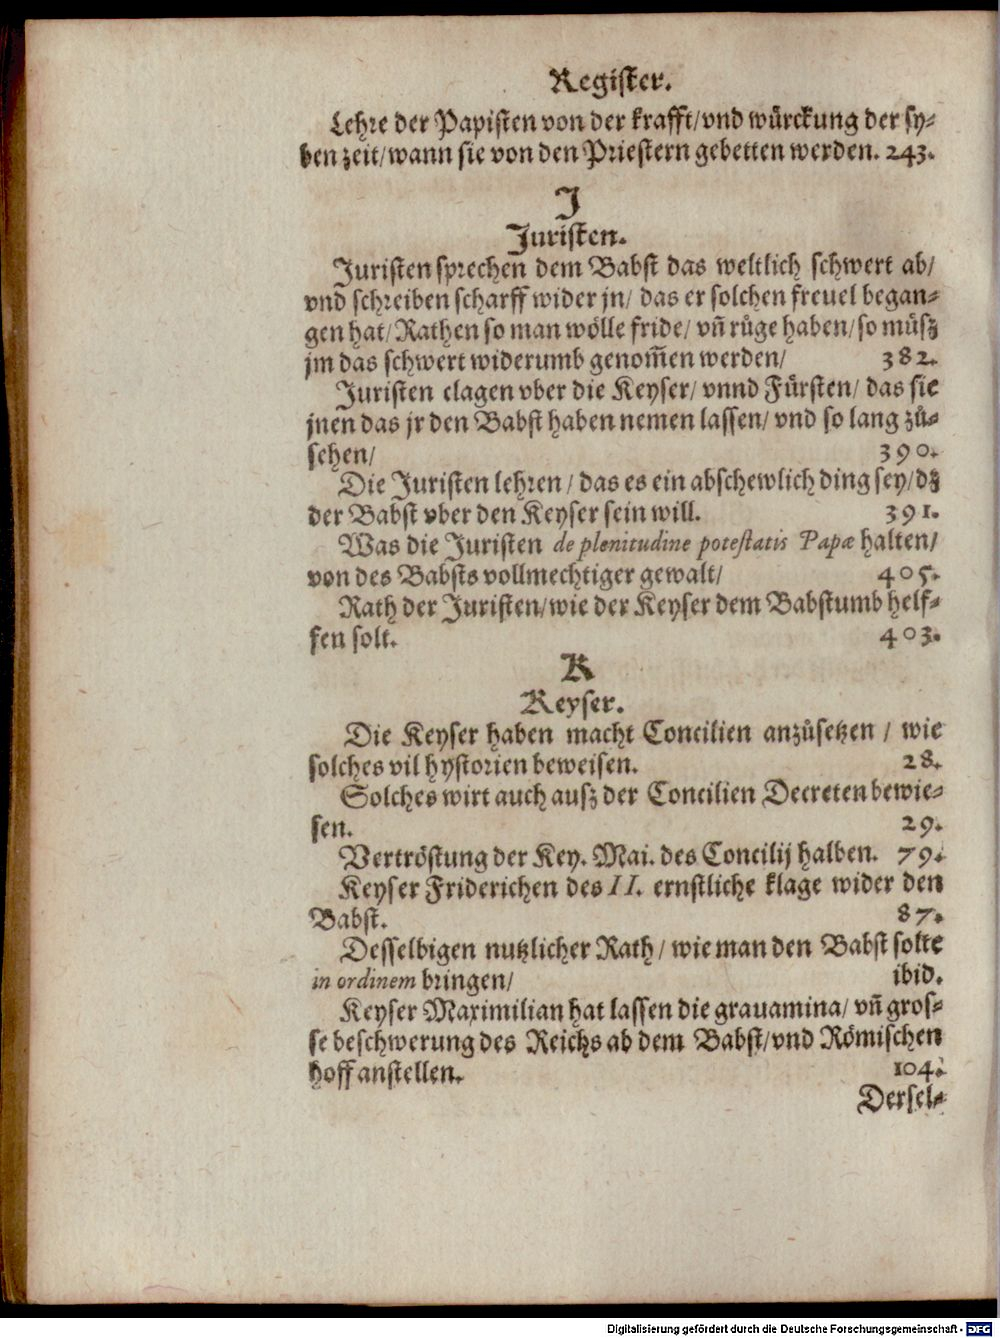 Register.
Lehre der Papisten von der krafft/vnd würckung der sy-
ben zeit/wann sie von den Priestern gebetten werden. 243.
J
Juristen.
Juristen sprechen dem Babst das weltlich schwert ab/
vnd schreiben scharff wider jn/ das er solchen freuel began-
gen hat/Rathen so man wölle fride/ vñ růge haben/so můsz
jm das schwert widerumb genom̃en werden/ 382.
Juristen clagen vber die Keyser/ vnnd Fürsten/ das sie
jnen das jr den Babst haben nemen lassen/ vnd so lang zů-
sehen/ 390.
Die Juristen lehren/ das es ein abschewlich ding sey/dz
der Babst vber den Keyser sein will. 391.
Was die Juristen de plenitudine potestatis Papæ halten/
von des Babsts vollmechtiger gewalt/ 405.
Rath der Juristen/wie der Keyser dem Babstumb helf-
fen solt. 403.
K
Keyser.
Die Keyser haben macht Concilien anzůsetzen / wie
solches vil hystorien beweisen. 28.
Solches wirt auch ausz der Concilien Decreten bewie-
sen. 29.
Vertröstung der Key. Mai. des Concilij halben. 79.
Keyser Friderichen des II. ernstliche klage wider den
Babst. 87.
Desselbigen nutzlicher Rath/ wie man den Babst solte
in ordinem bringen/ ibid.
Keyser Maximilian hat lassen die grauamina/ vñ gros-
se beschwerung des Reichs ab dem Babst/vnd Römischen
hoff anstellen. 104.
Dersel-
Digitalisierung gefördert durch die Deutsche Forschungsgemeinschaft - DFG